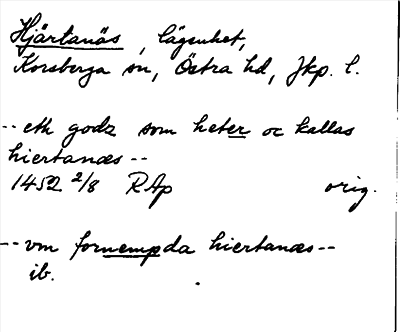 Hjärtanäs, lägenhet,
Korsberga sn, Östra hd, Jkp. l.
-- eth godz som heter oc kallas
hiertanæs --
1452 2/8 RAp orig.
-- vm fornempda hiertanæs --
ib.